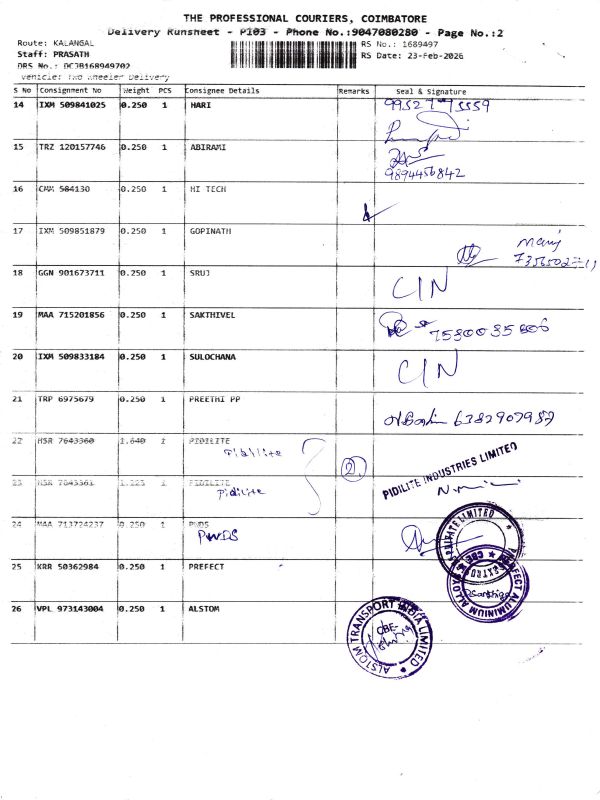 THE PROFESSIONAL COURIERS, COIMBATORE
Delivery Runsheet - PI03 - Phone No.:9047080280 - Page No.:2
Route: KALANGAL
RS No.: 1689497
Staff: PRASATH
RS Date: 23-Feb-2026
DRS No.: DCJB168949702
Vehicle: Two Wheeler Delivery
S No Consignment No Weight PCS Consignee Details Remarks Seal & Signature
14 IXM 509841025 0.250 1 HARI
15 TRZ 120157746 0.250 1 ABIRAMI
9894456842
16 CMM 584130 0.250 1 HI TECH
17 IXM 509851879 0.250 1 GOPINATH
18 GGN 901673711 0.250 1 SRUJ CIN
19 MAA 715201856 0.250 1 SAKTHIVEL
20 IXM 509833184 0.250 1 SULOCHANA CIN
21 TRP 6975679 0.250 1 PREETHI PP
6382907987
22 HSR 7643360 1.640 1 PIDILITE
Pidilite
2
PIDILITE INDUSTRIES LIMITED
23 HSR 7643361 1.123 1 PIDILITE
Pidilite
24 MAA 713724237 0.250 1 PWDS
PWDS
25 KRR 50362984 0.250 1 PREFECT
26 VPL 973143004 0.250 1 ALSTOM
ALSTOM TRANSPORT INDIA LIMITED
CBE-